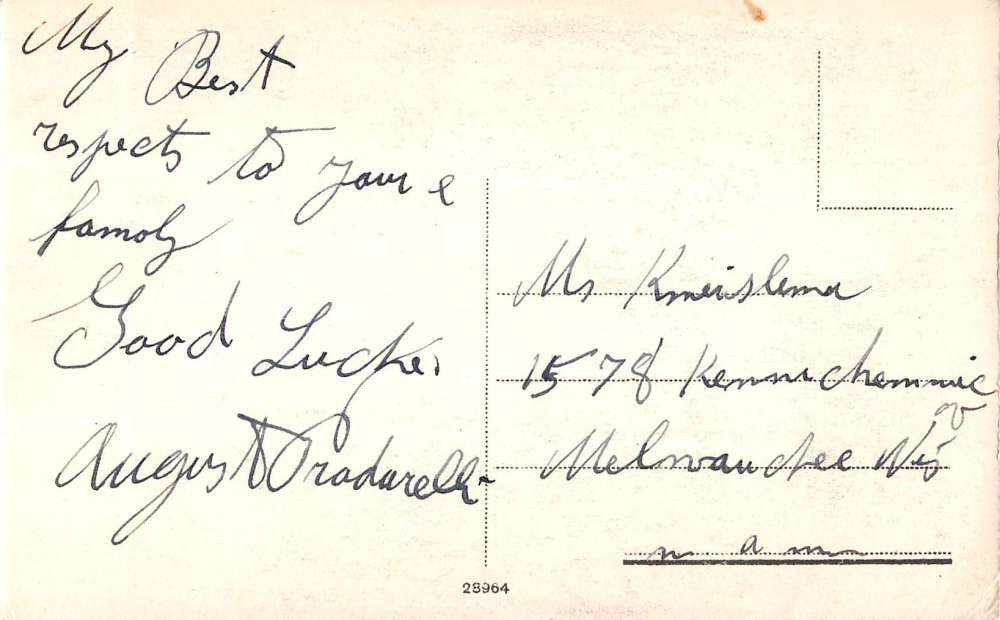 My Best
respects to your e
famoly
Good Lucke.
August Pradarelli
Ms Kneislema
1578
Melwauckee Wis
28964